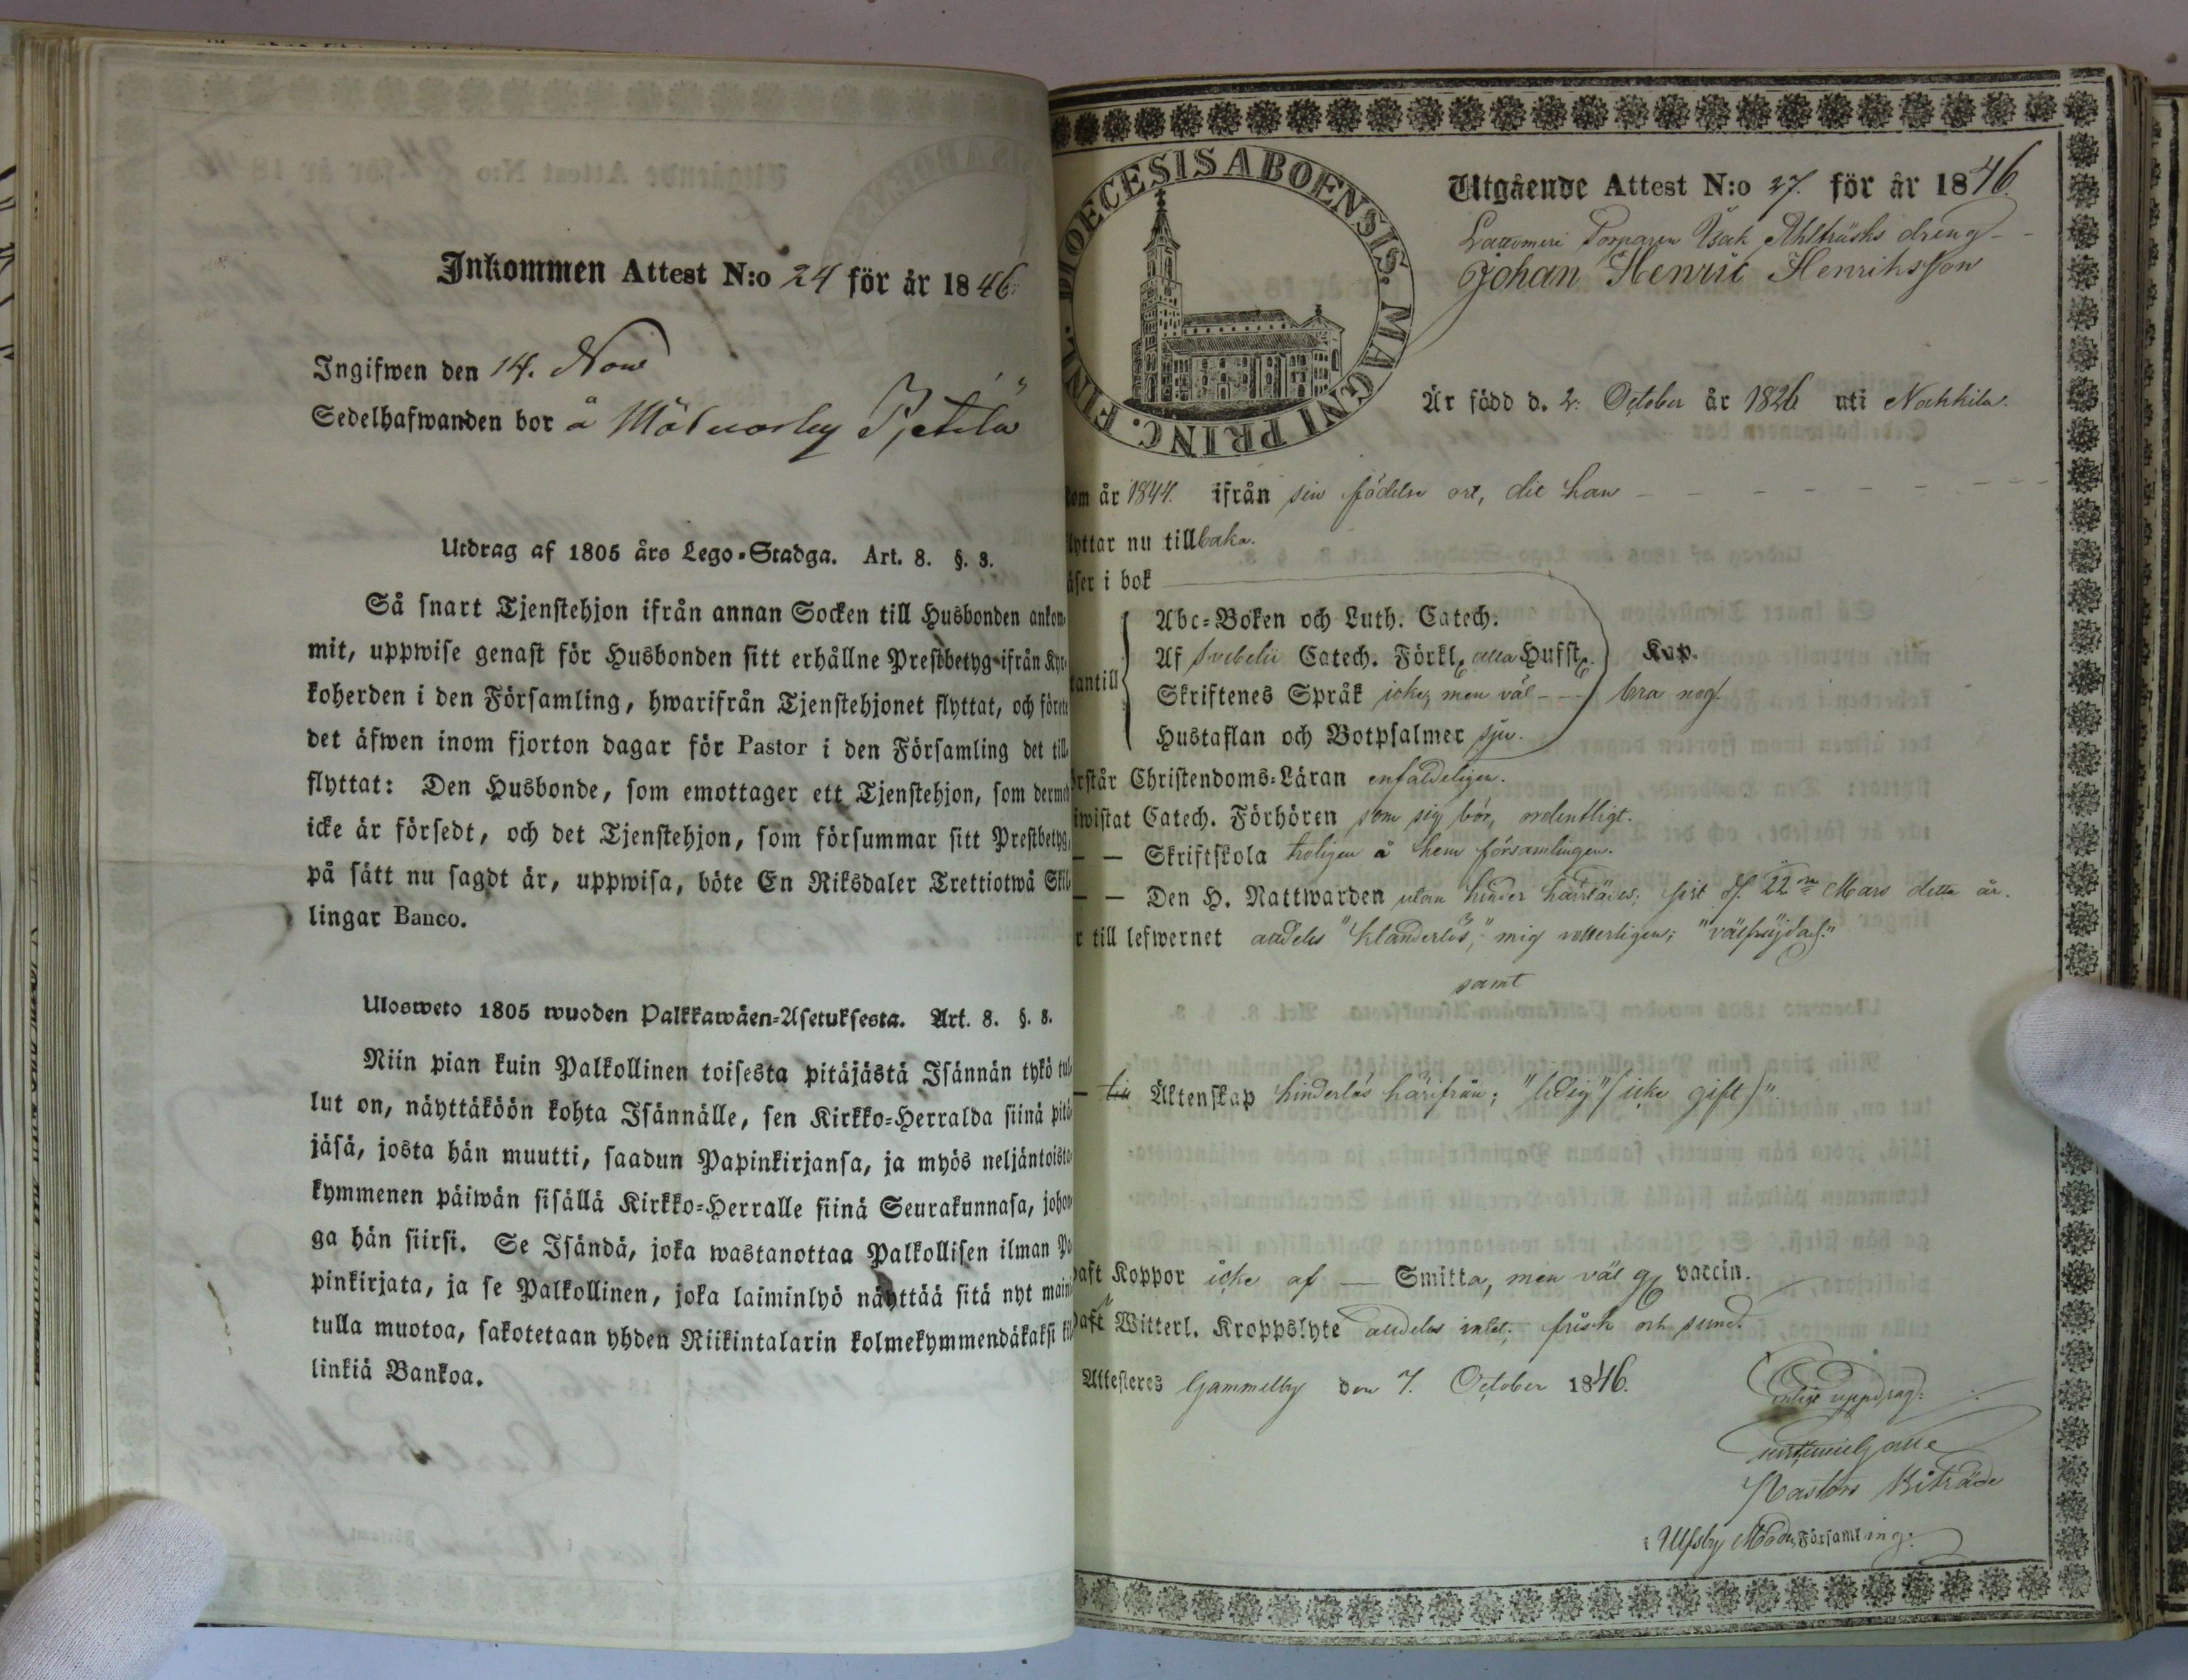 Inkommen Attest N:o 24 för år 1846.
Ingifwen den 14. Nov
Sedelhafwanden bor å
Utdrag af 1805 års Lego-Stadga. Art. 8. §. 8.
Så snart Tjenstehjon ifrån annan Socken till Husbonden ankom-
mit, uppwise genast för Husbonden sitt erhållne Prestbetyg ifrån Kyr-
koherden i den Församling, hwarifrån Tjenstehjonet flyttat, och förete
det äfwen inom fjorton dagar för Pastor i den Församling det till-
flyttat: Den Husbonde, som emottager ett Tjenstehjon, som dermed
icke är försedt, och det Tjenstehjon, som försummar sitt Prestbetyg,
på sätt nu sagdt är, uppwisa, böte En Riksdaler Trettiotwå Skil-
lingar Banco.
Ulosweto 1805 wuoden Palkkawäen-Asetuksesta. Art. 8. §. 8.
Niin pian kuin Palkollinen toisesta pitäjästä Isännän tykö tul-
lut on, näyttäköön kohta Isännälle, sen Kirkko-Herralda siinä pitä-
jäsä, josta hän muutti, saadun Papinkirjansa, ja myös neljäntoista-
kymmenen päiwän sisällä Kirkko-Herralle siinä Seurakunnasa, johon-
ga hän siirsi. Se Isändä, joka wastanottaa Palkollisen ilman Pa-
pinkirjata, ja se Palkollinen, joka laiminlyö näyttää sitä nyt maini-
tulla muotoa, sakotetaan yhden Riikintalarin kolmekymmendäkaksi kil-
linkiä Bankoa.
DIOECESIS ABOENSIS. MAGNI PRINC. FINL.
Utgående Attest N:o 27. för år 1846.
Lattomeri Torparen Isak Ahlträsks dreng
Johan Henric Henriksson
Är född d. 2. October år 1826 uti Nackila.
kom år 1844. ifrån sin födelse ort, dit han
flyttar nu tillbaka.
läser i bok
Abc-Boken och Luth. Catech.
Af Svebelii Catech. Förkl. alla Hufst. Kap.
utantill Skriftenes Språk icke, men väl bra nog.
Hustaflan och Botpsalmer sju.
förstår Christendoms-Läran enfaldeligen.
biwistat Catech. Förhören som sig bör, ordentligt.
— — Skriftskola troligen å hem församlingen.
— — Den H. Nattwarden utan hinder härstädes; sist d. 22 Mars detta år.
är till lefwernet alldeles "klanderlös," mig vetterligen; "välfrejdad."
samt
— till Äktenskap hinderlös härifrån; "ledig" (icke gift)".
haft Koppor icke af — Smitta, men väl vaccin.
haft Witterl. Kroppslyte alldeles intet; frisk och sund.
Attesteres Gammelby den 7. October 1846.
enligt uppdrag:
Pastors Biträde
i Ulfsby Moder Församling.